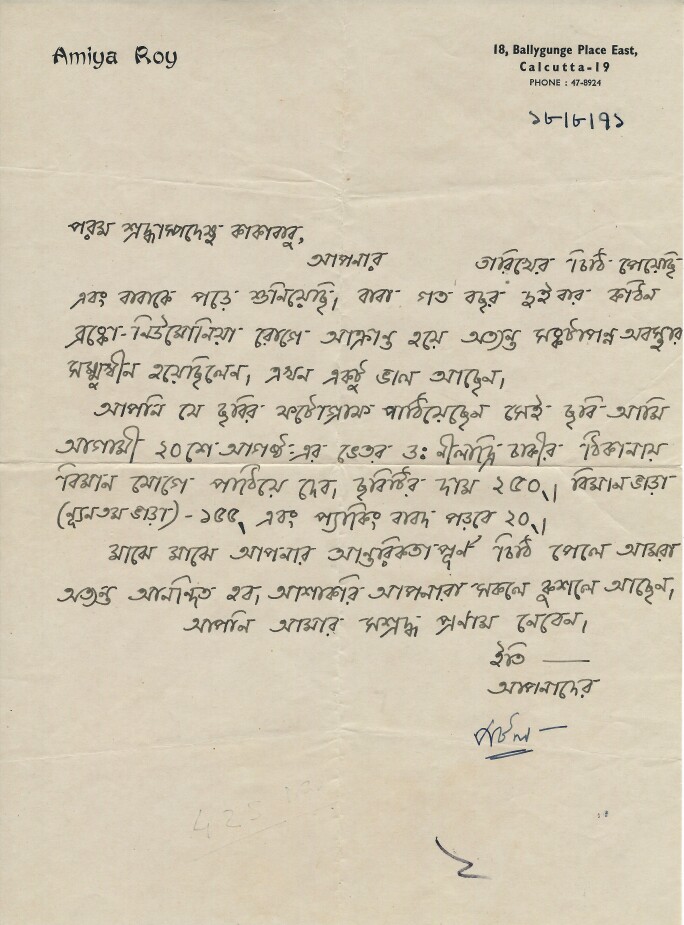 Amiya Roy
18, Ballygunge Place East,
Calcutta-19
PHONE : 47-8924
১৮/৮/৭১
পরম শ্রদ্ধাস্পদেষু কাকাবাবু,
আপনার তারিখের চিঠি পেয়েছি
এবং বাবাকে পড়ে শুনিয়েছি। বাবা গত বছর দুইবার কঠিন
ব্রঙ্কো-নিউমোনিয়া রোগে আক্রান্ত হয়ে অত্যন্ত সঙ্কটাপন্ন অবস্থার
সম্মুখীন হয়েছিলেন, এখন একটু ভাল আছেন।
আপনি যে ছবির ফটোগ্রাফ পাঠিয়েছেন সেই ছবি আমি
আগামী ২০শে আগষ্ট-এর ভেতর ডঃ নীলাদ্রি চাকীর ঠিকানায়
বিমান যোগে পাঠিয়ে দেব, ছবিটির দাম ২৫০৲। বিমানভাড়া
(ন্যূনতম ভাড়া) - ১৫৫৲ এবং প্যাকিং বাবদ পড়বে ২০৲।
মাঝে মাঝে আপনার আন্তরিকতাপূর্ণ চিঠি পেলে আমরা
অত্যন্ত আনন্দিত হব, আশাকরি আপনারা সকলে কুশলে আছেন,
আপনি আমার সশ্রদ্ধ প্রণাম নেবেন।
ইতি —
আপনাদের
পটল —